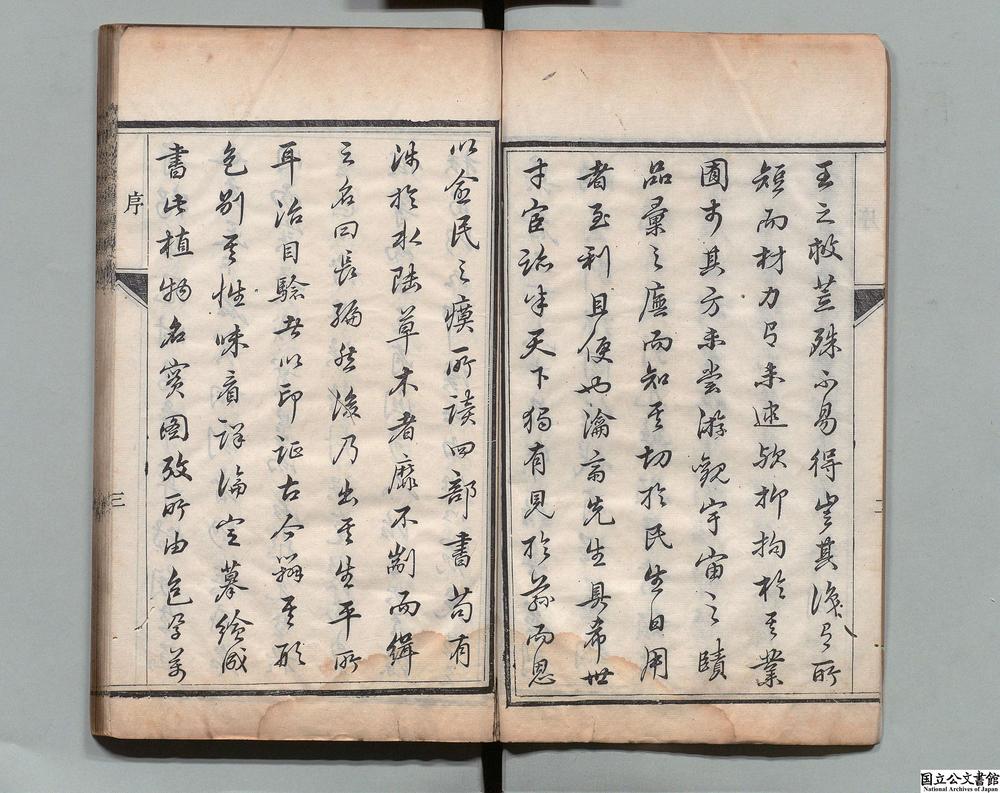 王之救荒殊不易得豈其識有所
短而材力有未逮歟抑拘於其業
囿於其方未嘗游觀宇宙之賾
品彙之廡而知其切於民生日用
者至利且便也瀹斎先生具希世
才宦跡半天下獨有見於茲而思
以愈民之瘼所讀四部書苟有
涉於水陸草木者靡不剬而緝
之名曰長編然後乃出其生平所
耳治目驗者以印證古今辨其形
色別其性味看詳論定摹繪成
書此植物名實圖攷所由包孕萬
序
三
序
二
国立公文書館
National Archives of Japan